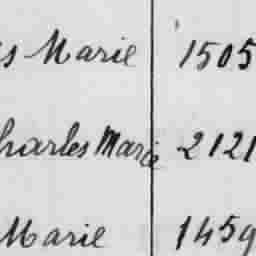 s Marie 1505
harles Marie 2121
Marie 1459